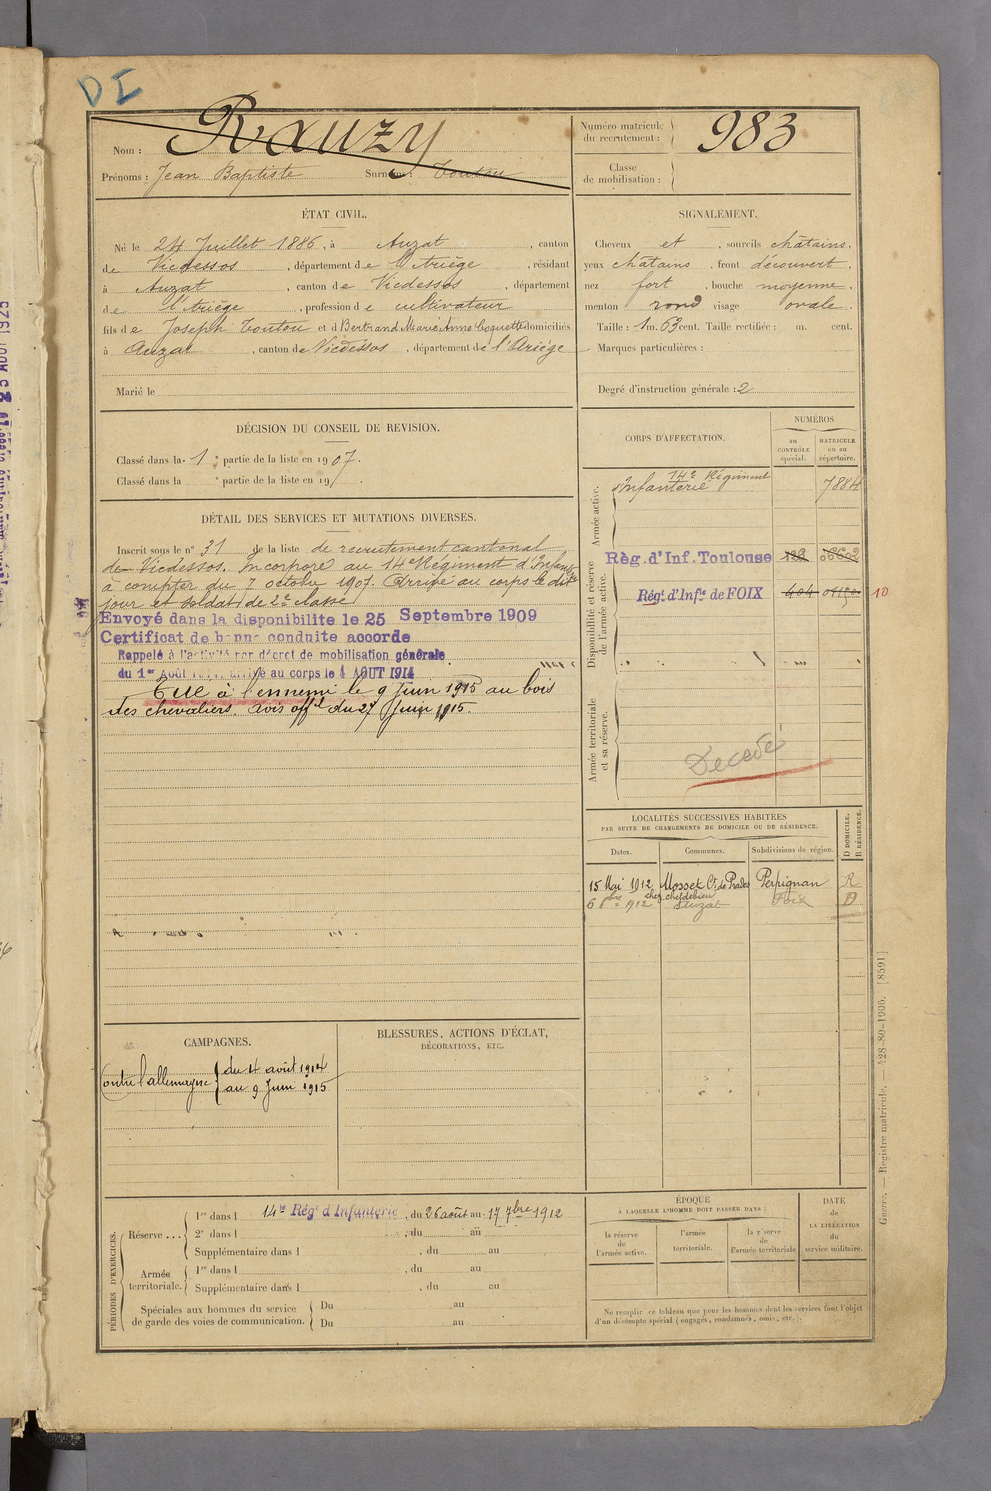 DI
Nom : Rauzy
Prénoms : Jean Baptiste Surnoms : Toutou
Numéro matricule du recrutement : 983
Classe de mobilisation :
ÉTAT CIVIL.
Né le 24 Juillet 1886, à Auzat, canton
de Vicdessos, département de l'Ariège, résidant
à Auzat, canton de Vicdessos, département
de l'Ariège, profession de cultivateur
fils de Joseph Toutou et de Bertrand Marie Anne Coquette domiciliés
à Auzat, canton de Vicdessos, département de l'Ariège
Marié le
SIGNALEMENT.
Cheveux et, sourcils châtains,
yeux châtains, front découvert,
nez fort, bouche moyenne,
menton rond visage ovale.
Taille : 1m. 63 cent. Taille rectifiée : m. cent.
Marques particulières :
Degré d'instruction générale : 2
DÉCISION DU CONSEIL DE REVISION.
Classé dans la 1e partie de la liste en 1907.
Classé dans la e partie de la liste en 19
DÉTAIL DES SERVICES ET MUTATIONS DIVERSES.
Inscrit sous le n° 31 de la liste de recrutement cantonal
de Vicdessos. Incorporé au 14e Régiment d'Infantie
à compter du 7 octobre 1907. Arrivé au corps le dit
jour et soldat de 2e classe
Envoyé dans la disponibilite le 25 Septembre 1909
Certificat de bonne conduite accorde
Rappelé à l'activité par décret de mobilisation générale
du 1er Août arrivé au corps le 4 AOUT 1914
Tué à l'ennemi le 9 Juin 1915 au bois
des chevaliers. Avis offel du 27 Juin 1915.
CORPS D'AFFECTATION.
NUMÉROS
au CONTRÔLE spécial.
MATRICULE ou au répertoire.
Armée active.
14e Régiment
Infanterie 7884
Disponibilité et réserve de l'armée active.
Règ. d'Inf. Toulouse
Rég.t d'Inf.ie de FOIX 10
Armée territoriale et sa réserve.
Decede
LOCALITÉS SUCCESSIVES HABITÉES
PAR SUITE DE CHANGEMENTS DE DOMICILE OU DE RÉSIDENCE.
Dates. Communes. Subdivisions de région. D DOMICILE. R RÉSIDENCE.
15 Mai 1912 Mosset Ct. de Prades Perpignan R
chez chefdebien
6 8bre 1912 Auzat Foix D
CAMPAGNES.
Contre l'allemagne { du 4 août 1914
au 9 Juin 1915
BLESSURES, ACTIONS D'ÉCLAT,
DÉCORATIONS, ETC.
PÉRIODES D'EXERCICES.
Réserve ... { 1re dans l 14e Rég.t d'Infanterie, du 26 août au 17 7bre 1912
2e dans l , du au
Supplémentaire dans l , du au
Armée territoriale. { 1re dans l , du au
Supplémentaire dans l , du au
Spéciales aux hommes du service de garde des voies de communication. { Du au
Du au
ÉPOQUE
À LAQUELLE L'HOMME DOIT PASSER DANS :
la réserve de l'armée active.
l'armée territoriale.
la réserve de l'armée territoriale
DATE de LA LIBÉRATION du service militaire.
Ne remplir ce tableau que pour les hommes dont les services font l'objet
d'un décompte spécial (engagés, condamnés, omis, etc.).
Guerre. — Registre matricule. — 428-80-1906. [8591]